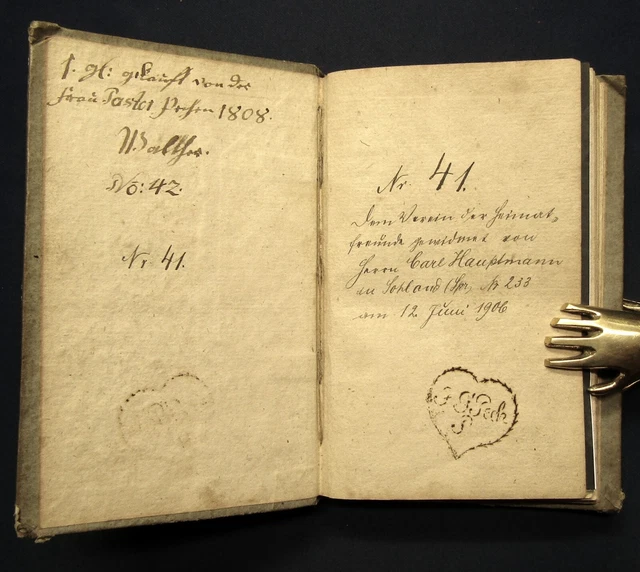 f. gl: gekauft von der
Frau Past: 1808.
Walther.
No: 42.
Nr 41.
Nr. 41.
Dem Verein der Heimat-
freunde gewidmet von
Herrn Carl Hauptmann
in Sohland (Spr) Nr 233
am 12. Juni 1906